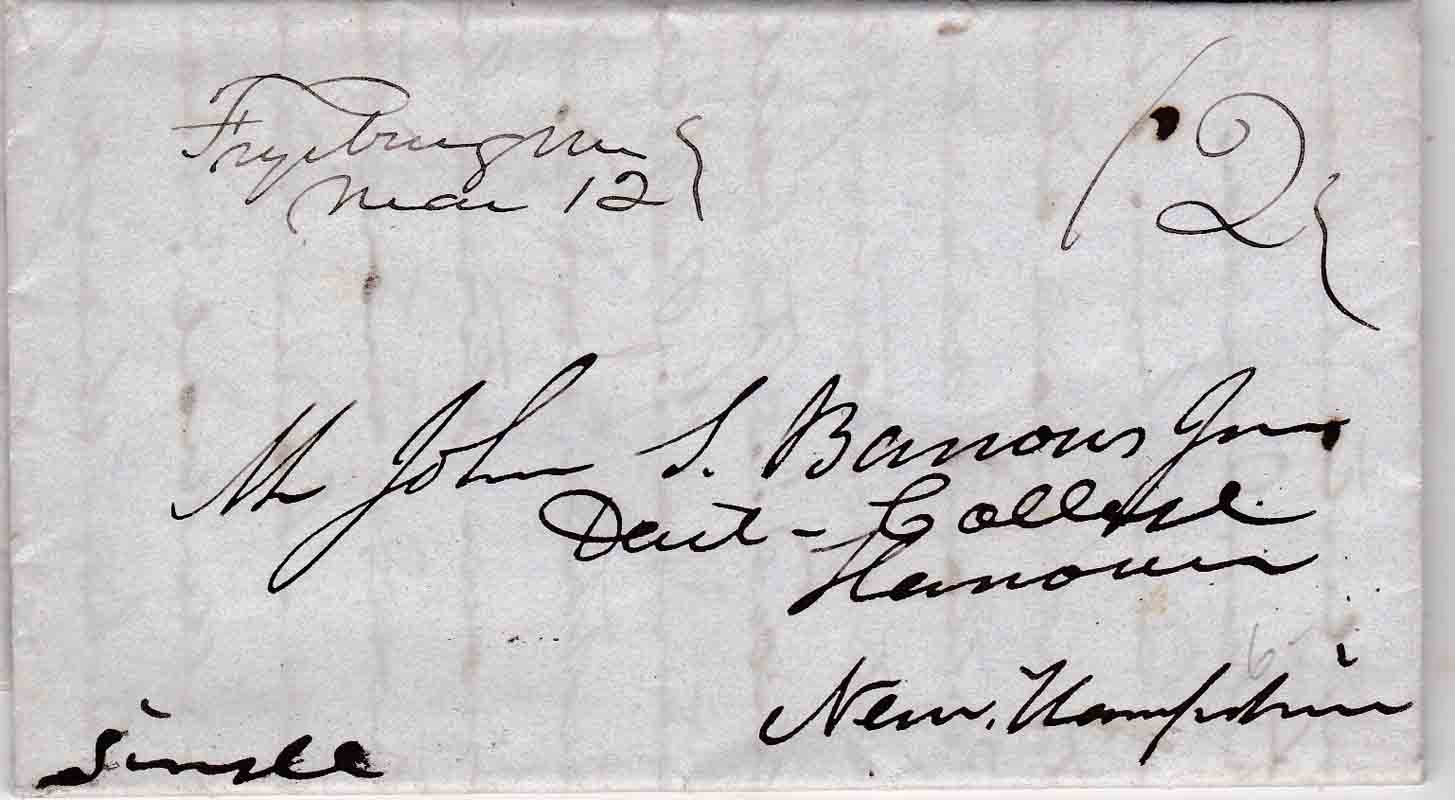 Fryeburg Me
Mar 12
12
Mr John S. Barrows Jnr
Dart- College
Hanover
New. Hampshire
Single
6